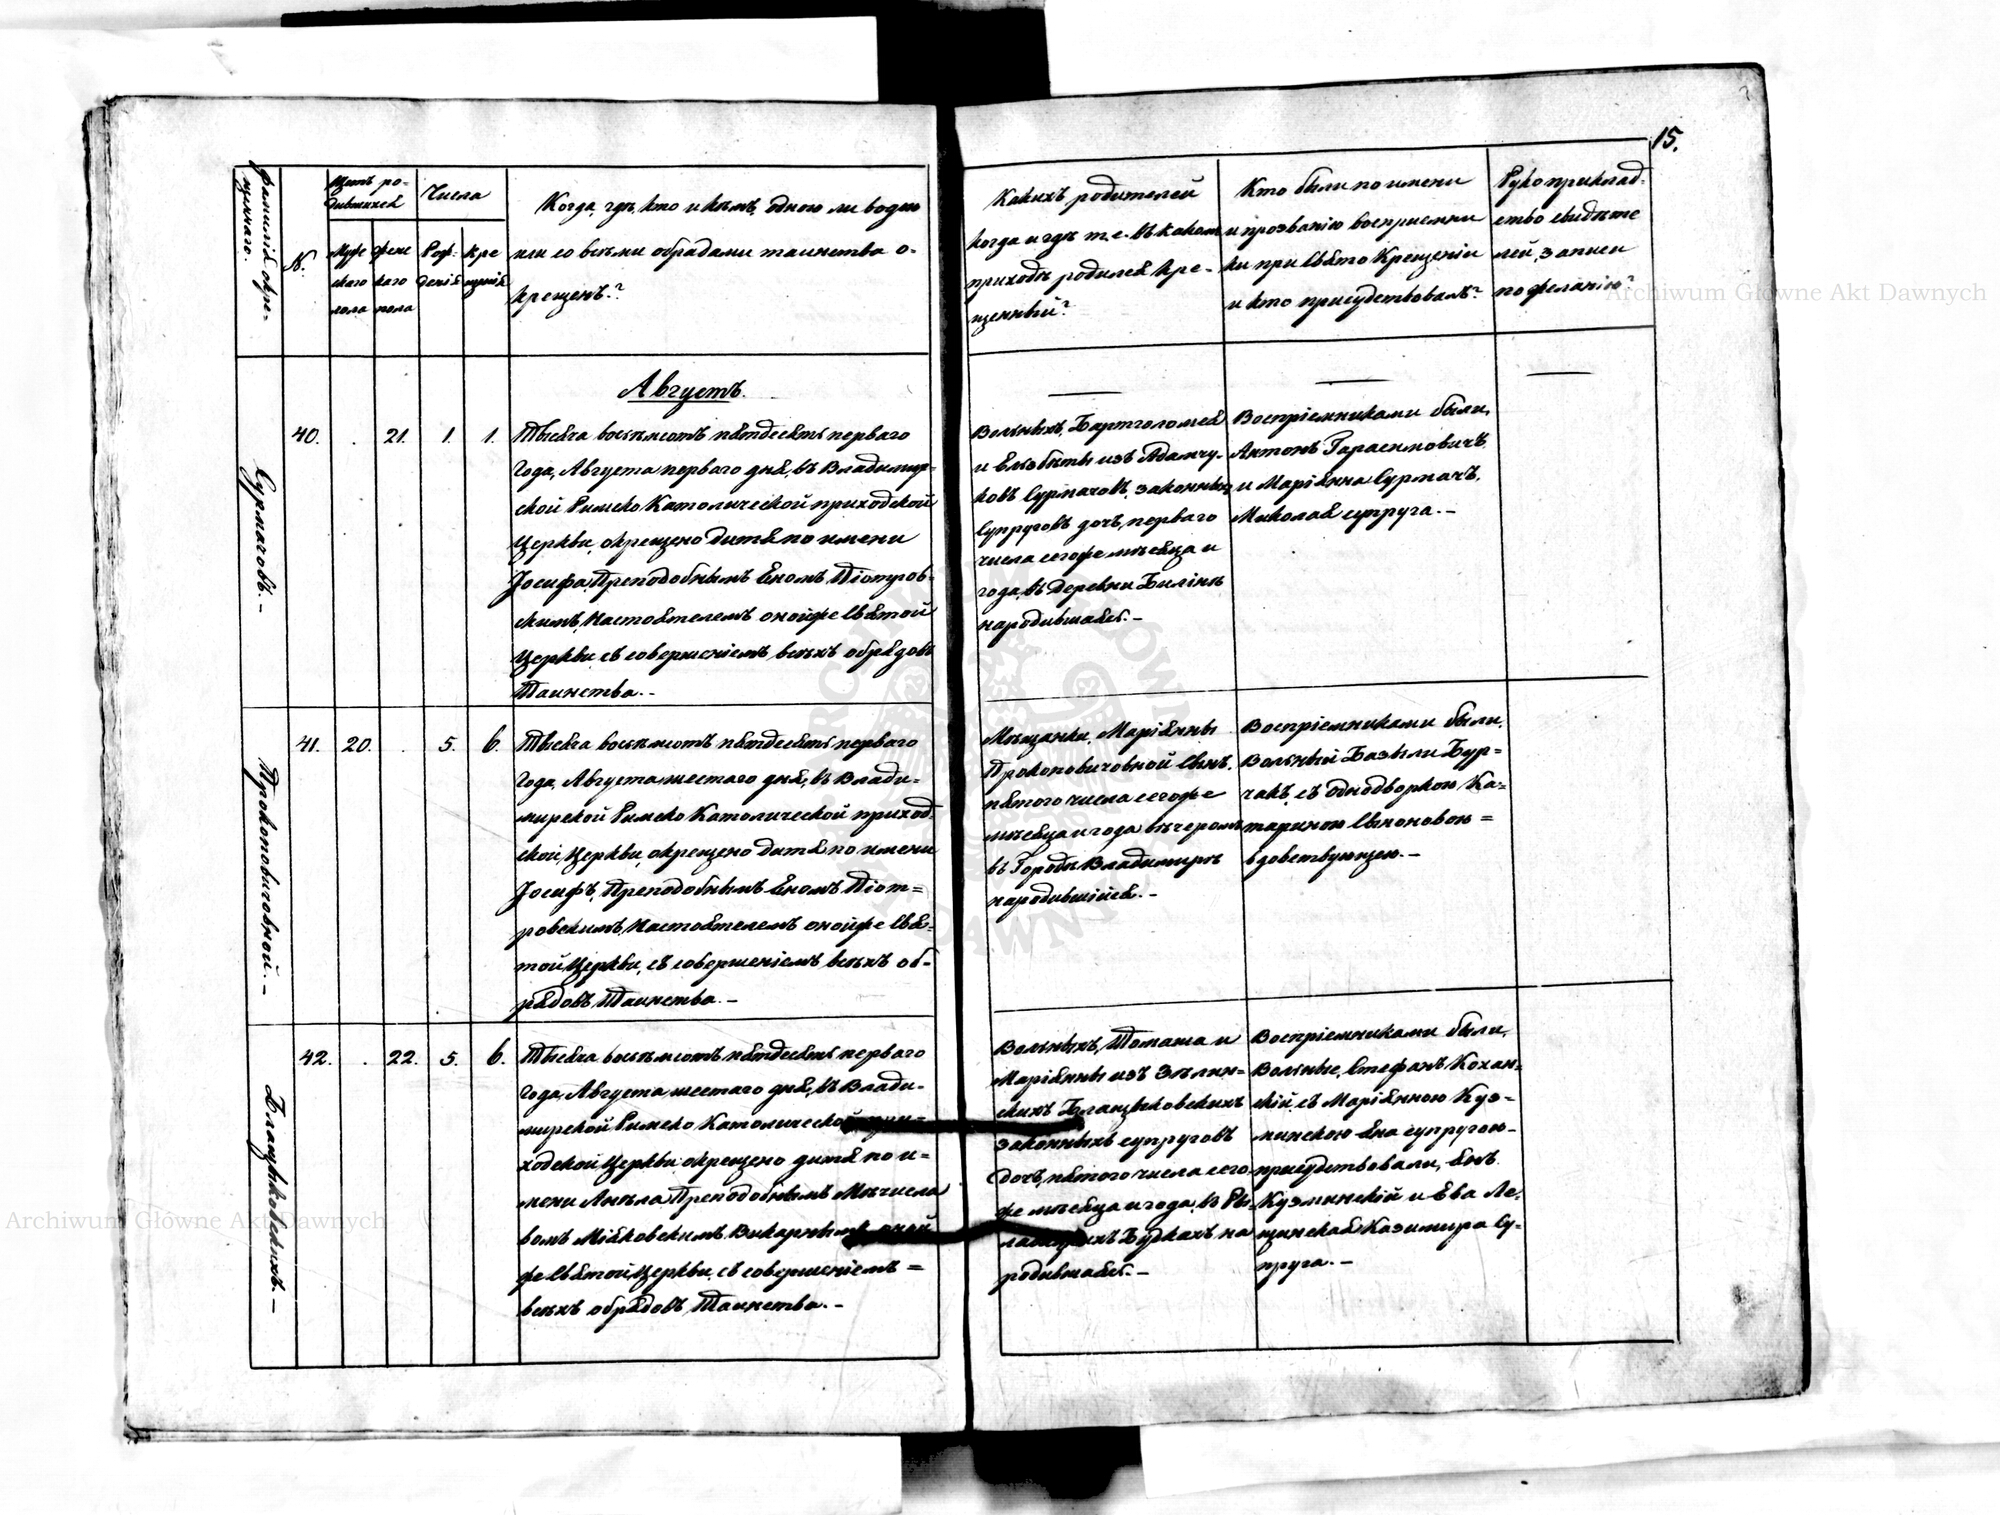 15.
Фамилія окре-
щеннаго.
№.
Щетъ ро-
дившихся
Муже
скаго
пола
Жене
каго
пола
Числа
Рож-
денія
Кре
щенія
Когда, гдѣ, кто и кѣмъ, одною ли водою
или со всѣми обрядами таинства о-
крещенъ?
Какихъ родителей
когда и гдѣ т. е. въ какомъ
приходѣ родился кре-
щенный?
Кто были по имени
и прозванію воспріемни
ки при Свято Крещеніи
и кто присудствовалъ?
Рукоприклад-
ство свидѣте
лей, записи
по желанію?
Августъ.
Сурмачовъ. -
40. . 21. 1. 1.
Тысяча восѣмсотъ пятдесятъ перваго
года, Августа перваго дня, въ Владимир-
ской Римско Католической приходской
Церкви, окрещено дитя по имени
Іосифа, Преподобнымъ Яномъ Піотров-
скимъ, Настоятелемъ онойже Святой
Церкви, съ совершеніемъ всѣхъ обрядовъ
Таинства. -
Вольныхъ, Бартоломея
и Елзбѣты изъ Адамчу-
ковъ Сурмачовъ, законныхъ
супруговъ дочь, перваго
числа сегоже мѣсяца и
года, въ Деревни Билинѣ
народившаяся. -
Воспріемниками были,
Антонъ Гарасимовичъ
и Маріянна Сурмачъ,
Миколая супруга. -
Прокоповичовной. -
41. 20. . 5. 6.
Тысяча восѣмсотъ пятдесятъ перваго
года, Августа шестаго дня, въ Влади-
мирской Римско Католической приход-
ской Церкви, окрещено дитя по имени
Іосифъ, Преподобнымъ Яномъ Піот=
ровскимъ, Настоятелемъ онойже Свя-
той Церкви, съ совершеніемъ всѣхъ об-
рядовъ Таинства. -
Мѣщанки, Маріянны
Прокоповичовной сынъ,
пятого числа сегоже
мѣсяца и года вѣчеромъ
въ Городѣ Владимирѣ
народившійся. -
Воспріемниками были,
Вольный Базыли Бур=
чакъ, съ Однодворкою Ка=
тариною Сыконовою =
вдовствующею. -
Бланцѣковскихъ. -
42. . 22. 5. 6.
Тысяча восѣмсотъ пятдесятъ перваго
года, Августа шестаго дня, въ Влади-
мирской Римско Католической при=
ходской Церкви окрещено дитя по и=
мени Анѣла, Преподобнымъ Мѣчисла
вомъ Міяковскимъ Викарнымъ оной
же Святой Церкви, съ совершеніемъ =
всѣхъ обрядовъ Таинства. -
Вольныхъ, Томаша и
Маріянны изъ Зѣлин-
скихъ Бланцѣковскихъ
законныхъ супруговъ
дочь, пятого числа сего
же мѣсяца и года, въ
Будкахъ на
родившаяся. -
Воспріемниками были,
Вольные, Стефанъ Кохан-
скій, съ Маріянною Куз-
минскою Яна супругою -
присудствовали, Янъ
Кузминскій и Ева Ле-
щинская Казимира Су-
пруга. -
Archiwum Główne Akt Dawnych
Archiwum Główne Akt Dawnych